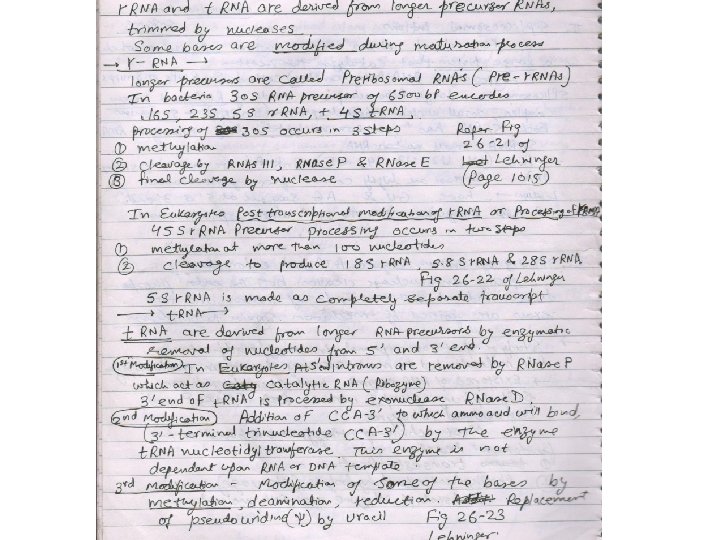 rRNA and tRNA are derived from longer precursor RNAs,
trimmed by nucleases.
Some bases are modified during maturation process
→ r-RNA →
longer precursors are called Preribosomal RNA's (Pre-rRNAs)
In bacteria 30S RNA precursor of 6500 bp encodes
16S, 23S, 5S rRNA, + 4S tRNA.
processing of 30S occurs in 3 steps Refer Fig
① methylation 26-21 of
② cleavage by RNAs III, RNase P & RNase E Lehninger
③ final cleavage by nuclease (Page 1015)
In Eukaryotes Post transcriptional modification of rRNA or Processing of
45S rRNA Precursor processing occurs in two steps
① methylation at more than 100 nucleotides
② cleavage to produce 18S rRNA 5.8S rRNA & 28S rRNA
Fig 26-22 of Lehninger
5S rRNA is made as completely separate transcript
→ tRNA →
tRNA are derived from longer RNA precursors by enzymatic
removal of nucleotides from 5' and 3' end.
1st Modification In Eukaryotes 5' introns are removed by RNase P
which act as catalytic RNA (Ribozyme)
3' end of tRNA is processed by exonuclease RNase D.
2nd Modification Addition of CCA-3' to which amino acid will bind,
(3'-terminal trinucleotide CCA-3') by the enzyme
tRNA nucleotidyl transferase. This enzyme is not
dependent upon RNA or DNA template.
3rd Modification - Modification of some of the bases by
methylation, deamination, reduction. Replacement
of pseudouridine (ψ) by uracil Fig 26-23
Lehninger.